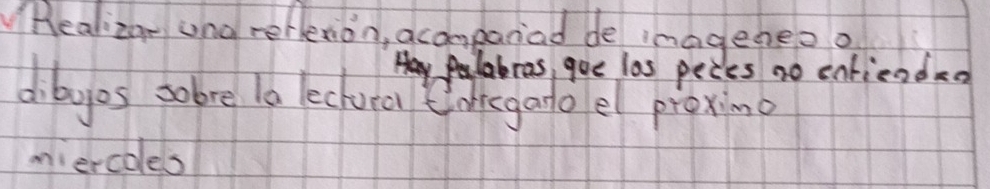 Realizar una reflexión, acompañad de imagenes o
Hay Palabras que los peces no entienden
dibujos sobre la lectura Entregarlo el proximo
miercoles